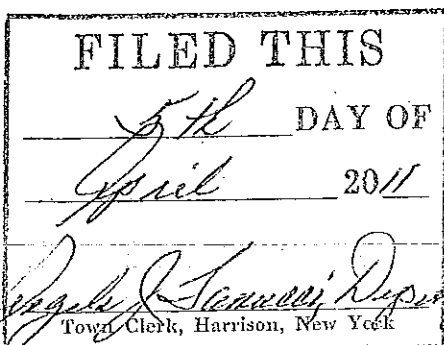 FILED THIS
5th DAY OF
April 2011
Angela J
Town Clerk, Harrison, New York